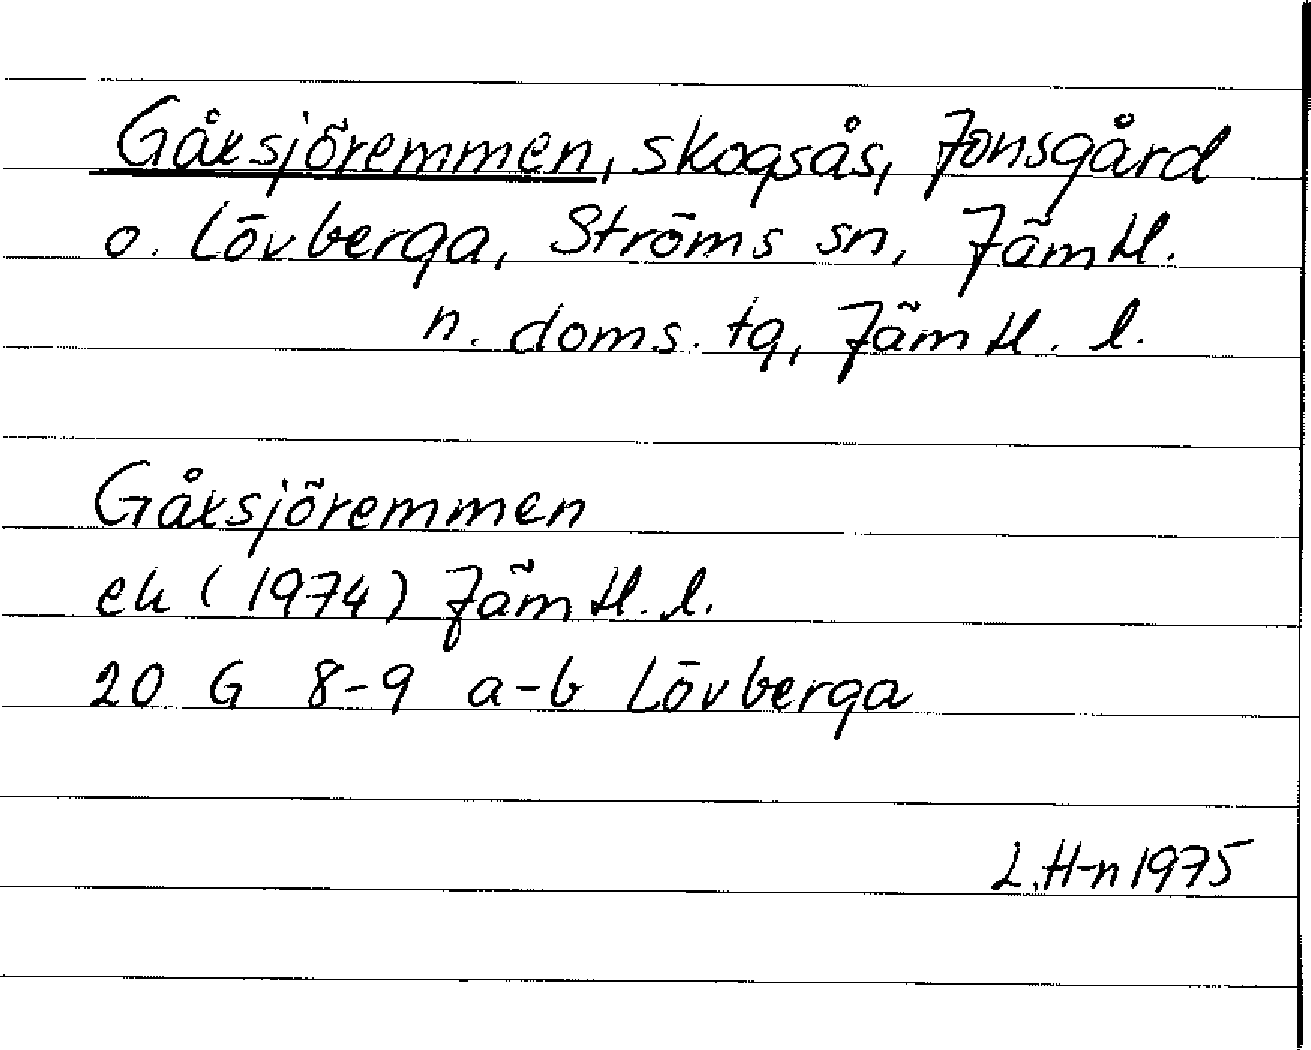 Gåxsjöremmen, skogsås, Jonsgård
o. Lövberga, Ströms sn, Jämtl.
n. doms. tg, Jämtl. l.
Gåxsjöremmen
ek (1974) Jämtl. l.
20 G 8-9 a-b Lövberga
L.H-n 1975